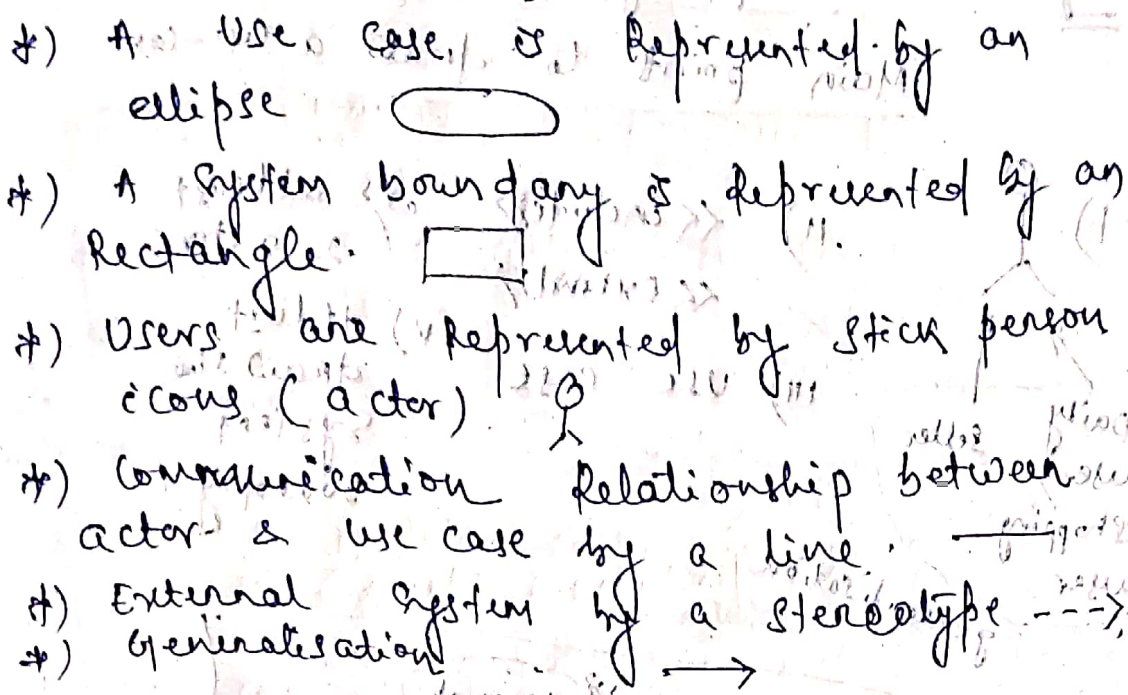 *) A Use Case is Represented by an
ellipse
*) A System boundary is Represented by an
Rectangle.
*) Users are Represented by Stick person
icons (actor)
*) Communication Relationship between
actor & use case by a line.
*) External System by a stereotype --->
*) Generalisation →